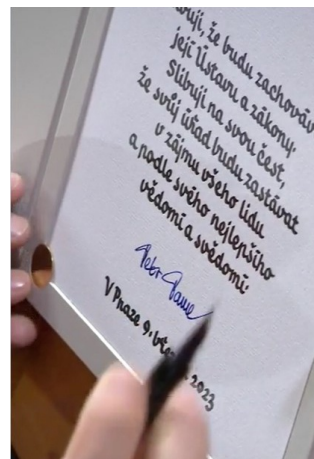 ují, že budu zachováv
její Ústavu a zákony.
Slibuji na svou čest,
že svůj úřad budu zastávat
v zájmu všeho lidu
a podle svého nejlepšího
vědomí a svědomí.
Petr Pavel
V Praze 9. břez 2023